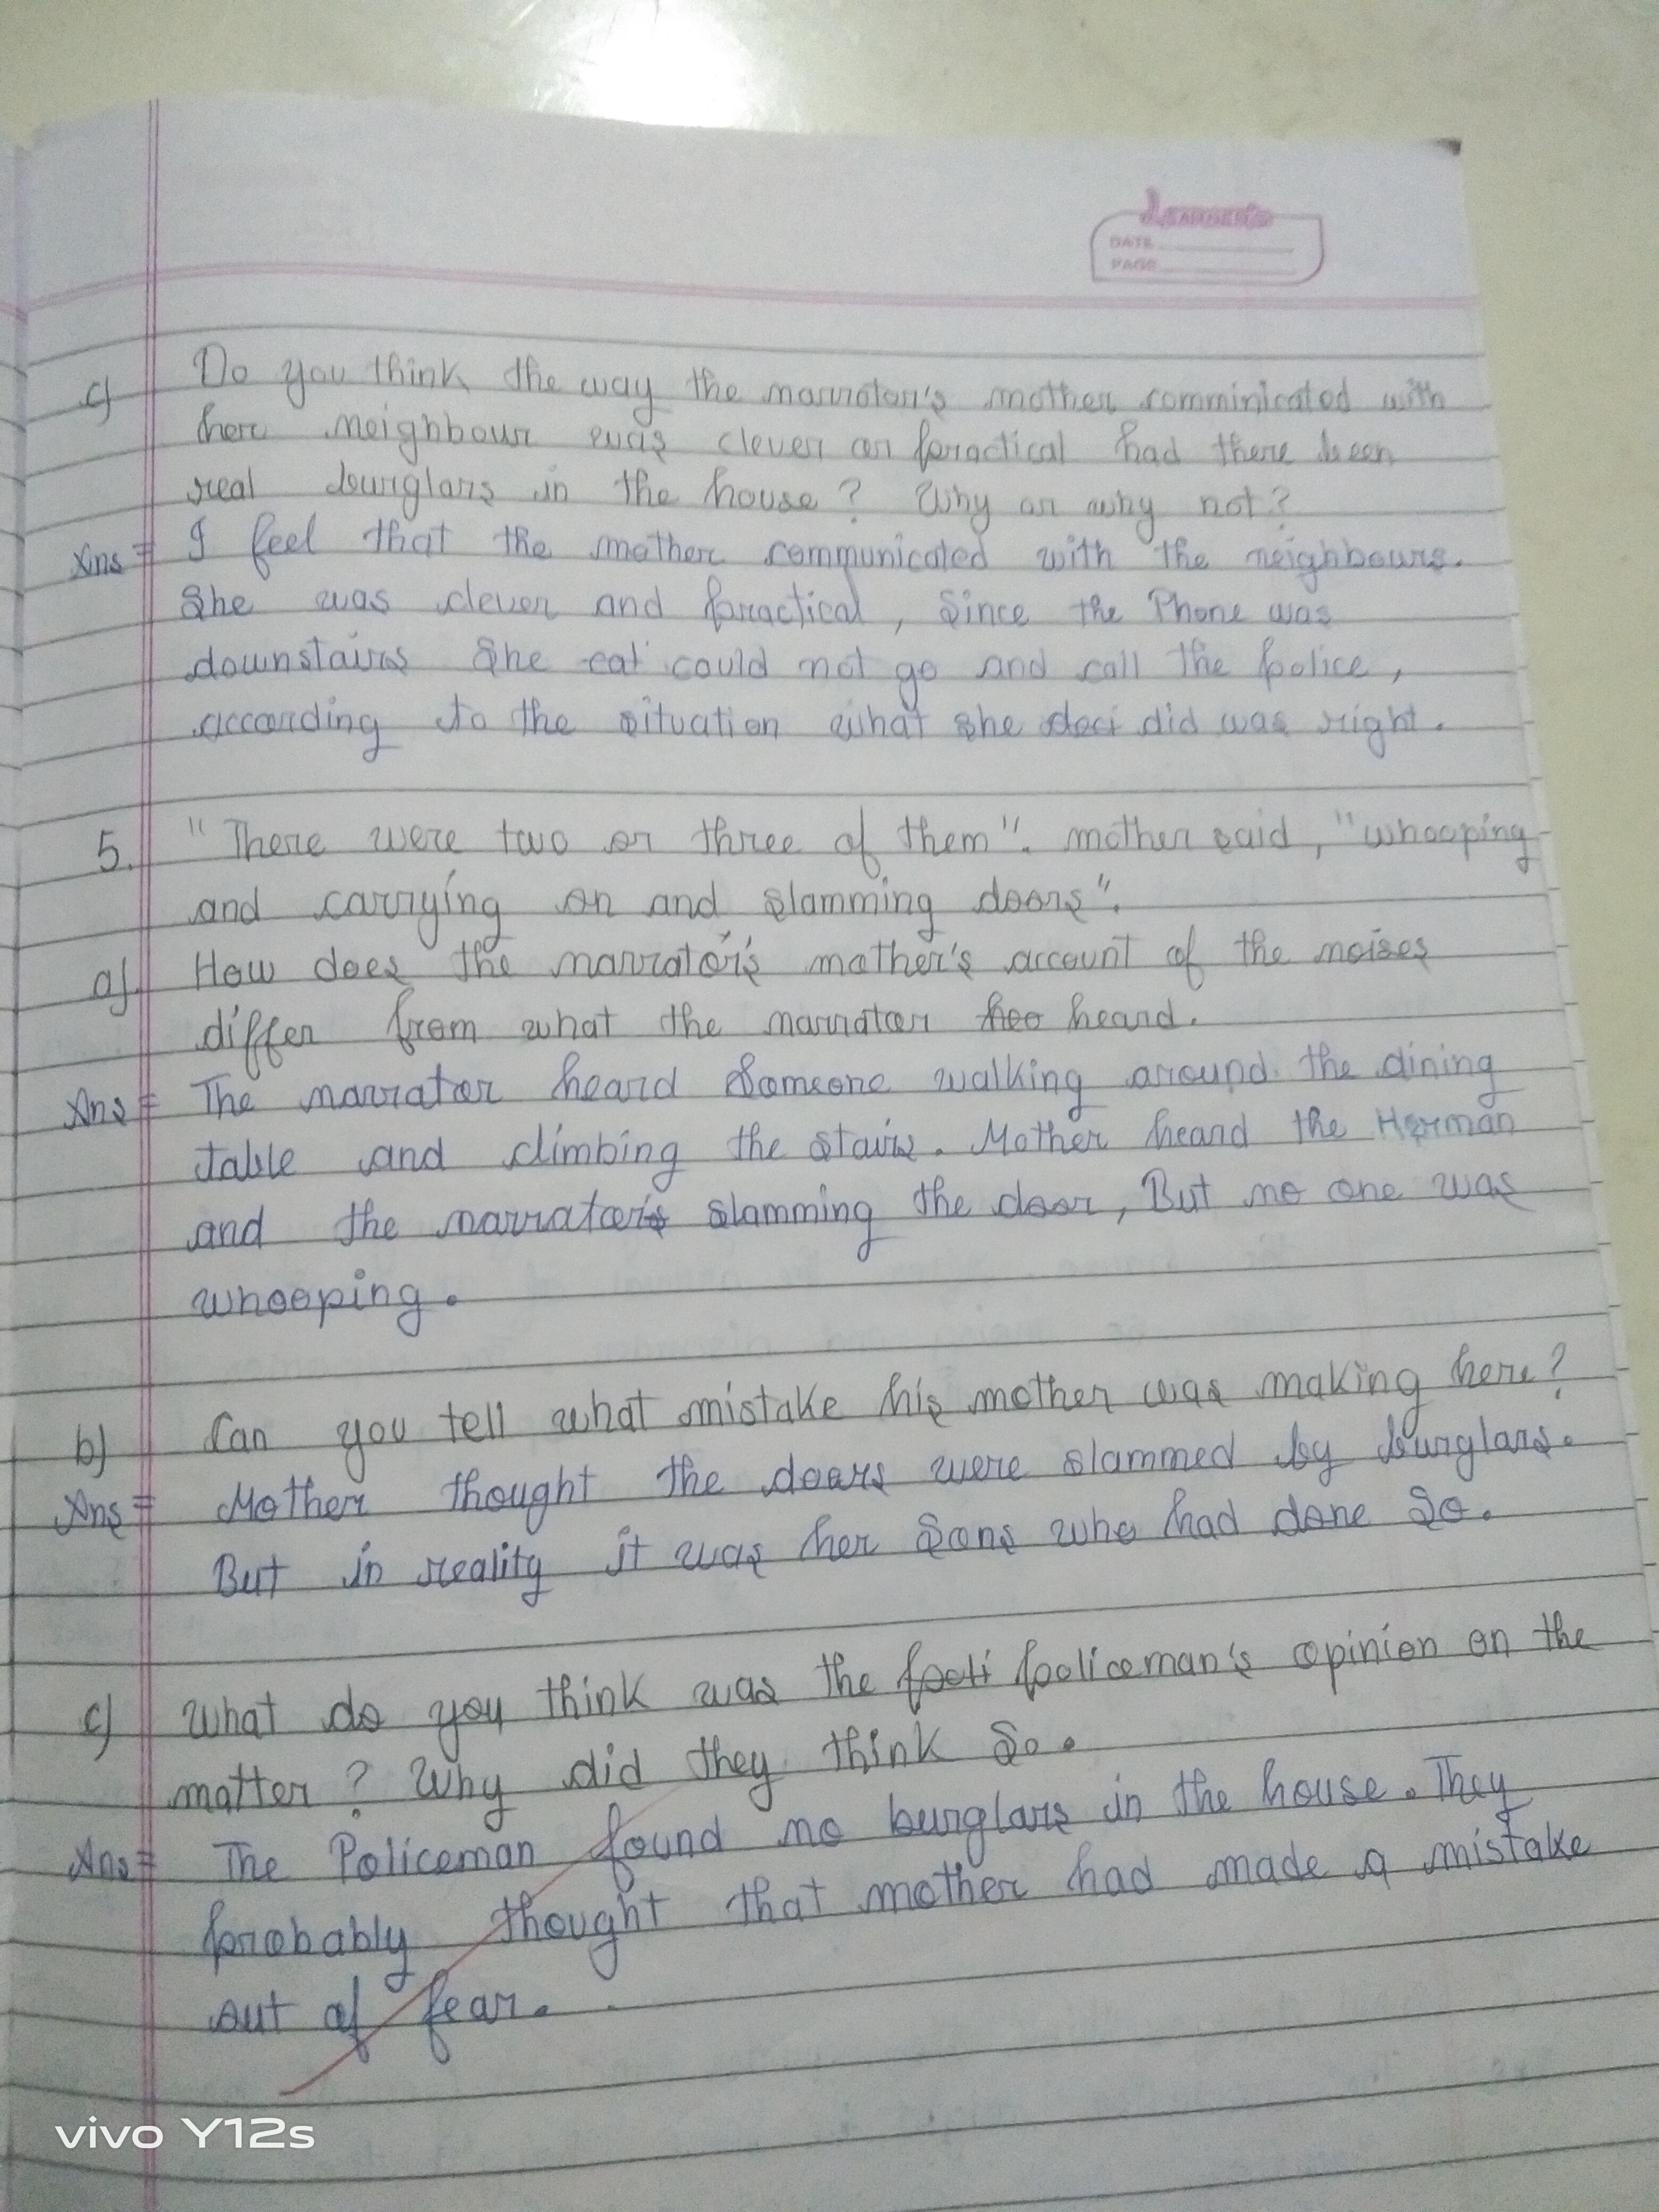 LEARNER'S
DATE
PAGE
c) Do you think the way the narrator's mother comminicated with
her neighbour was clever or practical had there been
real burglars in the house? Why or why not?
Ans = I feel that the mother communicated with the neighbours.
She was clever and practical, Since the Phone was
downstairs She cat could not go and call the police,
according to the situation what she deci did was right.
5. "There were two or three of them". mother said, "whooping
and carrying on and slamming doors".
a) How does the narrator's mother's account of the noises
differ from what the narrator heo heard.
Ans = The narrator heard Someone walking around the dining
table and climbing the stairs. Mother heard the Herman
and the narrator's slamming the door, But no one was
whooping.
b) Can you tell what mistake his mother was making here?
Ans = Mother thought the doors were slammed by burglars.
But in reality it was her Sons who had done So.
c) What do you think was the poli policeman's opinion on the
matter? Why did they think So.
Ans = The Policeman found no burglars in the house. They
probably thought that mother had made a mistake
out of fear.
vivo Y12s